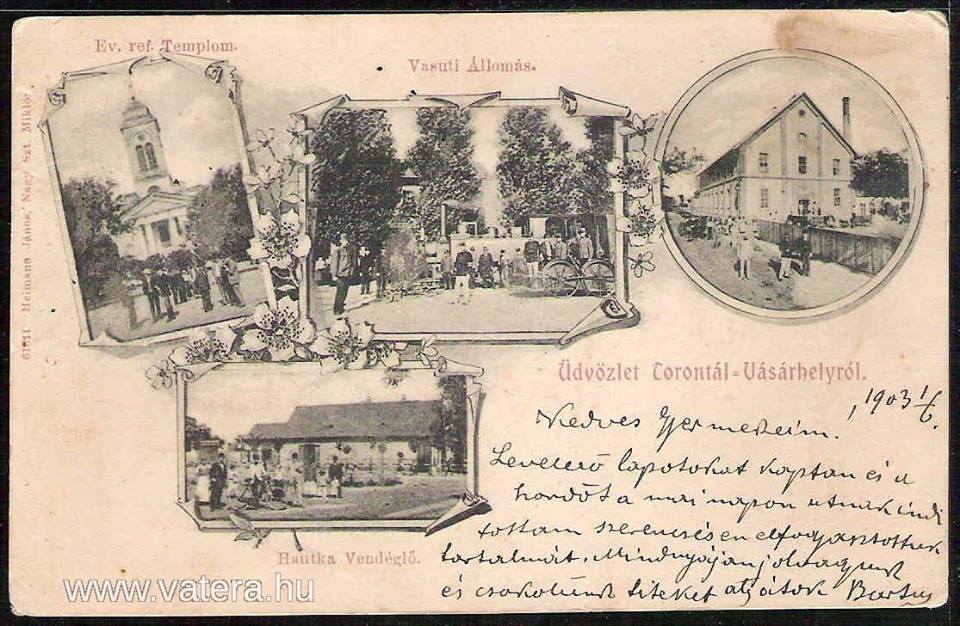 Ev. ref. Templom.
Vasuti Állomás.
61611 Heimann János, Nagy Szt. Miklós
Üdvözlet Torontál=Vásárhelyról.
1903 1/6.
Kedves Gyermekeim.
Levelező lapotokat kaptam és a
hordót a mai napon utnak indi
tottam szerencsésen elfogyasztottuk
tartalmát. Mindnyájan jól vagyunk
és csokolunk titeket atyátok
Hautka Vendéglő.
www.vatera.hu